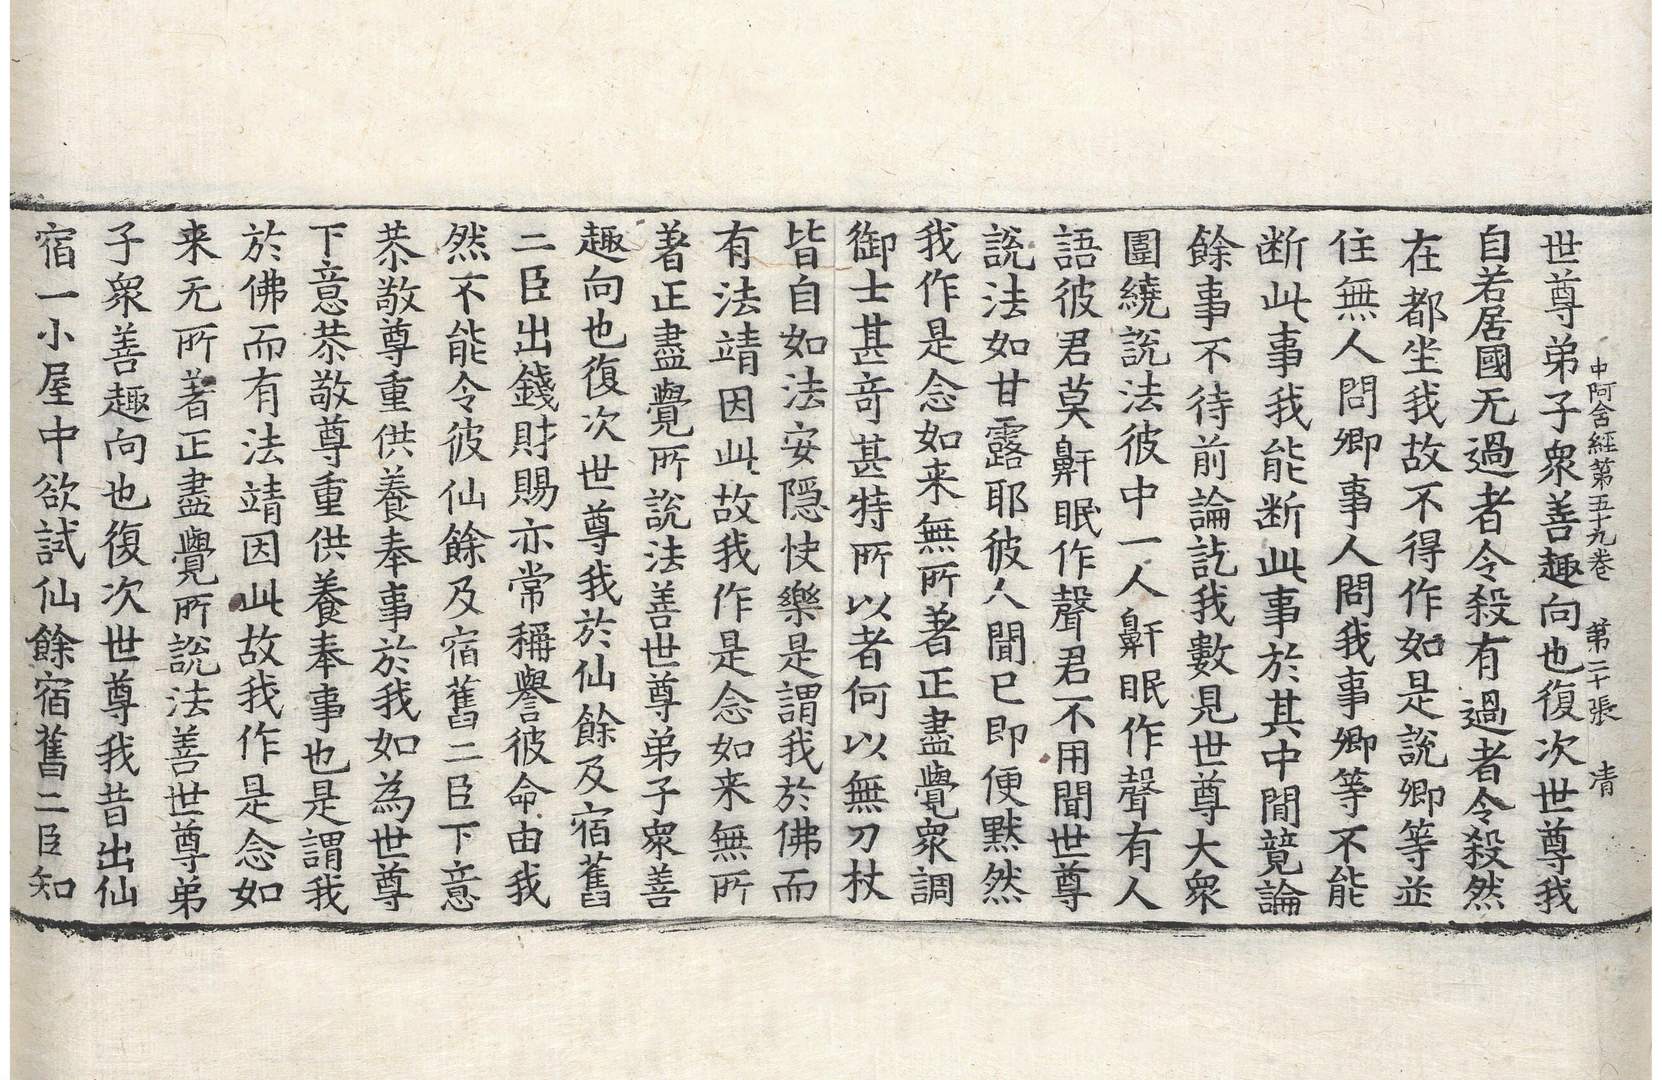 中阿含經第五十九卷 第二十張 清
世尊弟子衆善趣向也復次世尊我
自若居國无過者令殺有過者令殺然
在都坐我故不得作如是說卿等並
住無人問卿事人問我事卿等不能
断此事我能断此事於其中間競論
餘事不待前論訖我數見世尊大衆
圍繞說法彼中一人鼾眠作聲有人
語彼君莫鼾眠作聲君不用聞世尊
說法如甘露耶彼人聞已即便默然
我作是念如来無所著正盡覺衆調
御士甚奇甚特所以者何以無刀杖
皆自如法安隱快樂是謂我於佛而
有法靖因此故我作是念如来無所
著正盡覺所說法善世尊弟子衆善
趣向也復次世尊我於仙餘及宿舊
二臣出錢財賜亦常稱譽彼命由我
然不能令彼仙餘及宿舊二臣下意
恭敬尊重供養奉事於我如為世尊
下意恭敬尊重供養奉事也是謂我
於佛而有法靖因此故我作是念如
来无所著正盡覺所說法善世尊弟
子衆善趣向也復次世尊我昔出仙
宿一小屋中欲試仙餘宿舊二臣知